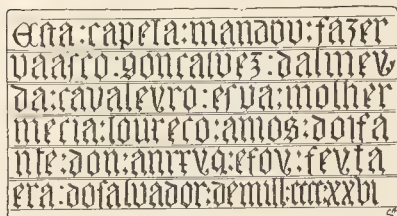 Esta:capela:mandou:fazer
vaasco:gonçalvez:dalmey
da:cavaleyro:esua:molher
mecia:loureço:amos:doifa
nte:don:anrryq:efoy:feyta
era:dosaluador:demill:cccc:xxvi